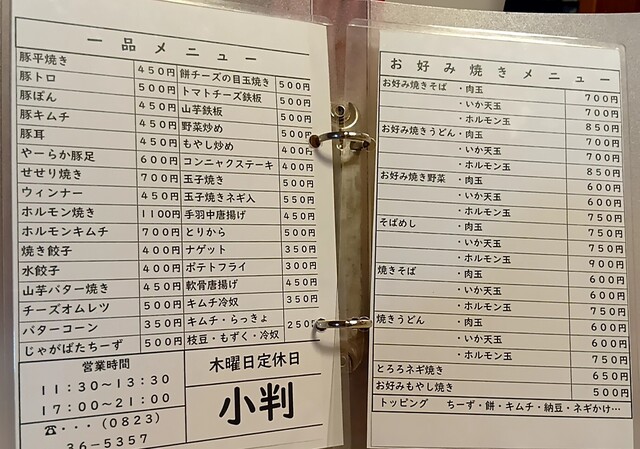 一品メニュー
豚平焼き 450円 餅チーズの目玉焼き 500円
豚トロ 450円 トマトチーズ鉄板 500円
豚ぽん 450円 山芋鉄板 500円
豚キムチ 450円 野菜炒め 500円
豚耳 450円 もやし炒め 400円
やーらか豚足 600円 コンニャクステーキ 400円
せせり焼き 700円 玉子焼き 500円
ウィンナー 450円 玉子焼きネギ入 550円
ホルモン焼き 1100円 手羽中唐揚げ 450円
ホルモンキムチ 700円 とりから 500円
焼き餃子 400円 ナゲット 350円
水餃子 400円 ポテトフライ 300円
山芋バター焼き 450円 軟骨唐揚げ 450円
チーズオムレツ 500円 キムチ冷奴 350円
バターコーン 350円 キムチ・らっきょ 250円
じゃがばたちーず 500円 枝豆・もずく・冷奴
営業時間
11:30~13:30
17:00~21:00
☎・・・(0823)
36-5357
木曜日定休日
小判
お好み焼きメニュー
お好み焼きそば ・肉玉 700円
・いか天玉 700円
・ホルモン玉 850円
お好み焼きうどん ・肉玉 700円
・いか天玉 700円
・ホルモン玉 850円
お好み焼き野菜 ・肉玉 600円
・いか天玉 600円
・ホルモン玉 750円
そばめし ・肉玉 750円
・いか天玉 750円
・ホルモン玉 900円
焼きそば ・肉玉 600円
・いか天玉 600円
・ホルモン玉 750円
焼きうどん ・肉玉 600円
・いか天玉 600円
・ホルモン玉 750円
とろろネギ焼き 650円
お好みもやし焼き 500円
トッピング ちーず・餅・キムチ・納豆・ネギかけ…